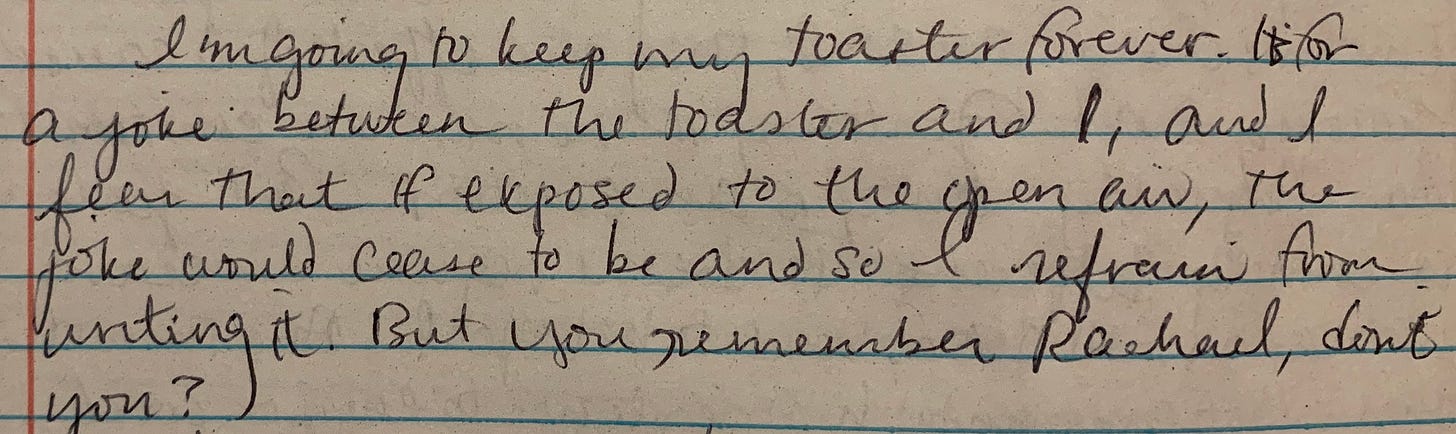 I'm going to keep my toaster forever. It's for
a joke between the toaster and I, and I
fear that if exposed to the open air, the
joke would cease to be and so I refrain from
writing it. But you remember Rachael, don't
you?